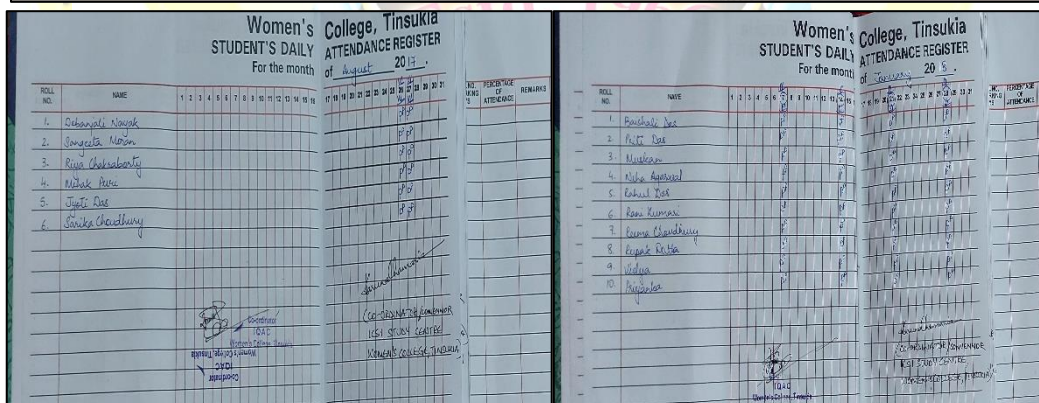 Women's College, Tinsukia
STUDENT'S DAILY ATTENDANCE REGISTER
For the month of August 2017.
ROLL NO. NAME 1 2 3 4 5 6 7 8 9 10 11 12 13 14 15 16 17 18 19 20 21 22 23 24 25 26 27 28 29 30 31 PERCENTAGE OF ATTENDANCE REMARKS
1. Debanjali Nayak
2. Sangeeta Moran
3. Riya Chakraborty
4. Puri
5. Jyoti Das
6. Sarika Choudhury
(CO-ORDINATOR/CONVENNOR
ICSI STUDY CENTRE
WOMEN'S COLLEGE, TINSUKIA)
Co-ordinator
IQAC
Women's College, Tinsukia
Coordinator
IQAC
Women's College, Tinsukia
Women's College, Tinsukia
STUDENT'S DAILY ATTENDANCE REGISTER
For the month of January 20
ROLL NO. NAME PERCENTAGE OF ATTENDANCE
1. Baishali Das
2. Priti Das
3. Muskan
4. Neha Agarwal
5. Rahul Das
6. Rani Kumari
7. Choudhury
8. Dutta
9. Vidya
10. Priyanka
ICSI STUDY CENTRE
WOMEN'S COLLEGE, TINSUKIA)
IQAC
Women's College, Tinsukia